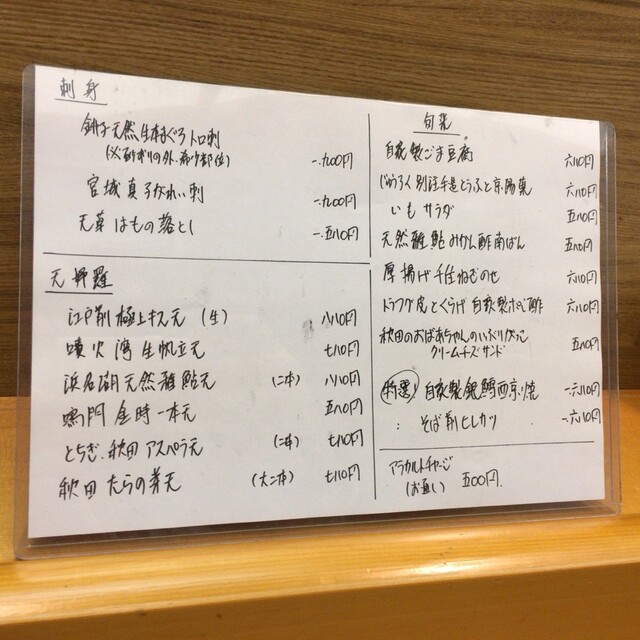 刺身
銚子天然生本まぐろトロ刺
一.九〇〇円
宮城 真子がれい刺
一.九〇〇円
天草 はもの落とし
一.五八〇円
天婦羅
江戸前 極上キス天 (生)
八八〇円
噴火湾 生帆立天
七八〇円
浜名湖 天然稚鮎天 (二本)
八八〇円
鳴門 金時一本天
五八〇円
とちぎ.秋田 アスパラ天 (二本)
七八〇円
秋田 たらの芽天 (大二本)
七八〇円
旬菜
自家製ごま豆腐
六八〇円
じゅうろく別注手造とうふと京湯葉
六八〇円
いもサラダ
五八〇円
天然稚鮎 みかん酢南ばん
五八〇円
厚揚げ千住ねぎのせ
六八〇円
トラフグ皮とくらげ 自家製ポン酢
六八〇円
秋田のおばあちゃんのいぶりがっこ
クリームチーズサンド
五八〇円
特選! 自家製銀鱈西京焼
一.六八〇円
: そば前ヒレカツ
一.六八〇円
アラカルトチャージ
(お通し) 五〇〇円.